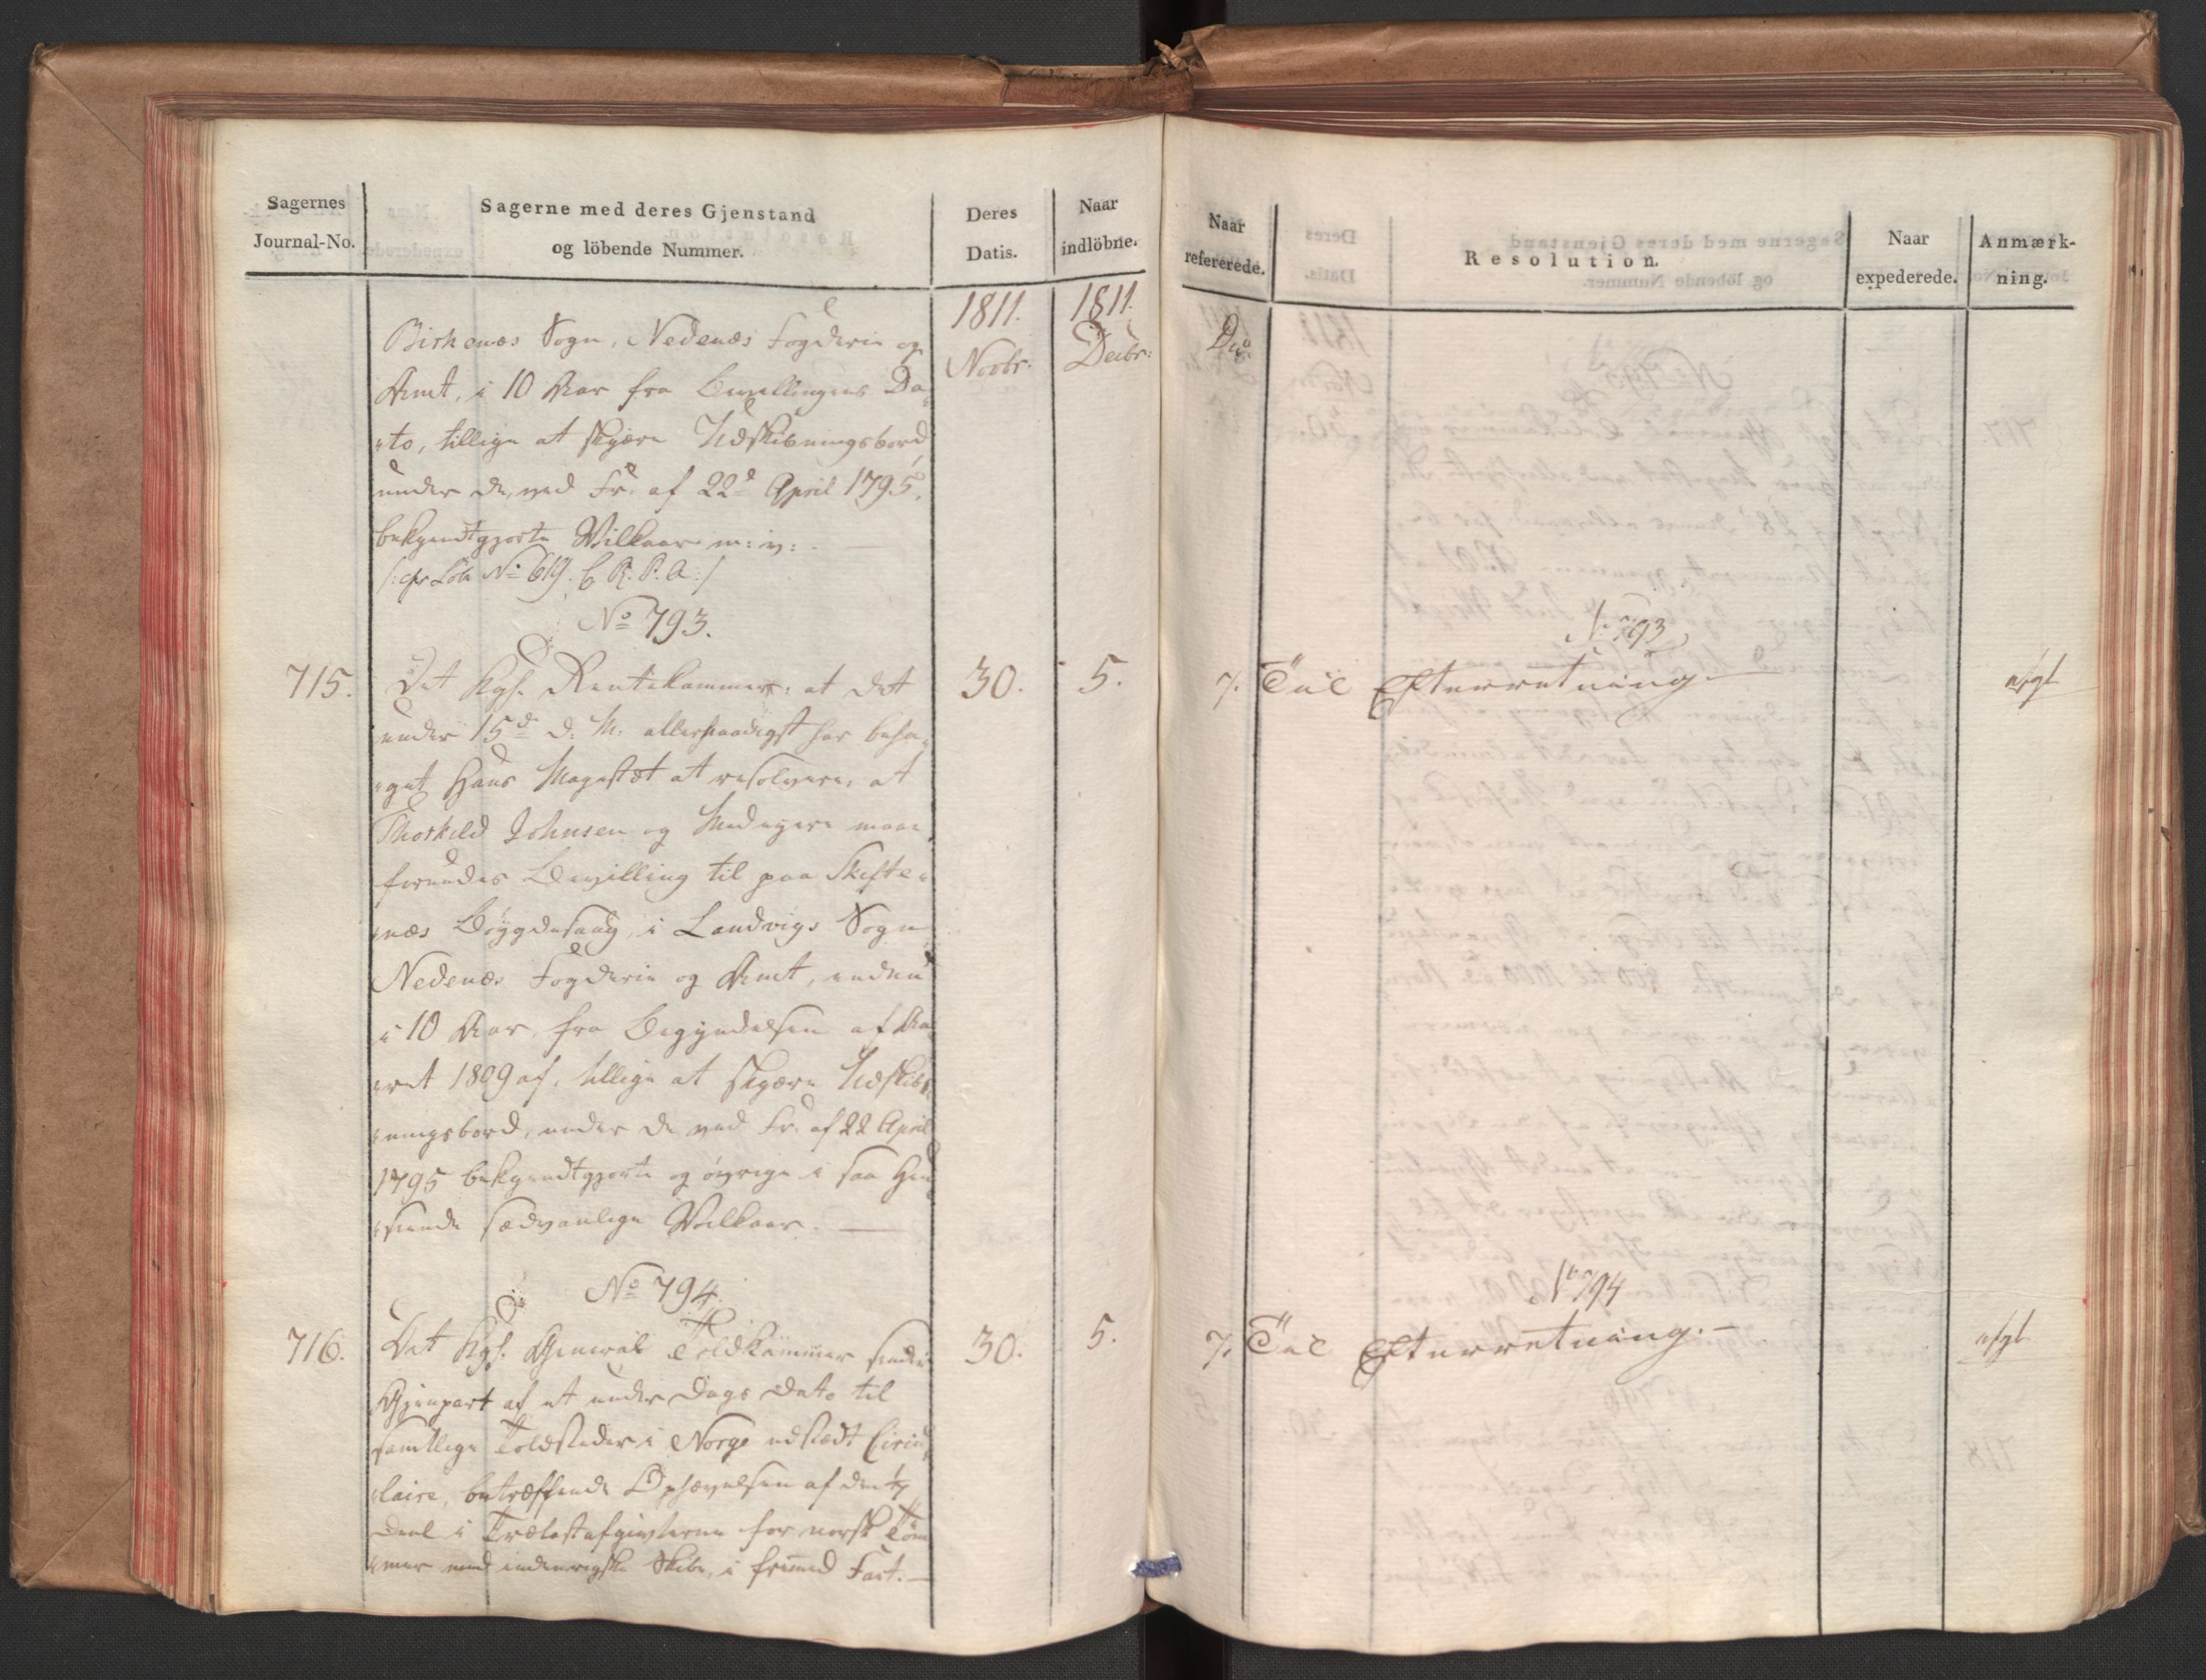 Sagernes
Journal-No.
Sagerne med deres Gjenstand
og löbende Nummer.
Deres
Datis.
Naar
indlöbne.
1811.
Novbr.
1811.
Decbr:
Birkenæs Sogn, Nedenæs Fogderie og
Amt, i 10 Aar fra Bevillingens Da-
"to, tillige at skjære Udskibningsbord
under de, ved Fr. af 22d April 1795,
bekjendtgjorte Vilkaar m: v: . —
/: cfr Löb No 619. C. R. P. A :/
No 793.
715.
Det Kgl. Rentekammer: at det
under 15de d: M: allernaadigst har beha-
"get Hans Majestæt at resolvere, at
Thorkild Johnsen og Medeyere maae
forundes Bevilling til paa Skifte-
"næs Böygdesaug, i Landvigs Sogn
Nedenæs Fogderie og Amt, endnu
i 10 Aar, fra Begyndelsen af Aa-
"ret 1809 af, tillige at skjære Udskib-
"ningsbord, under de ved Fr. af 22 April
1795 bekjendtgjorte og övrige i saa Hen-
"seende sædvanlige Vilkaar. —
30.
5.
No 794.
716.
Det Kgl. General Toldkammer sender
Gjenpart af et under Dags Dato til
samtlige Toldsteder i Norge udstædt Circu-
"laire, betræffende Ophævelsen af den
Deel i Trælastafgivterne for norsk Töm-
"mer med indenrigske Skibe, i fremmed Fart. —
30.
5.
Naar
refererede.
Resolution.
Naar
expederede.
Anmærk-
ning.
No 793
7. Til Efterretning. —
afgl
No 794
7. Til Efterretning. —
afgl